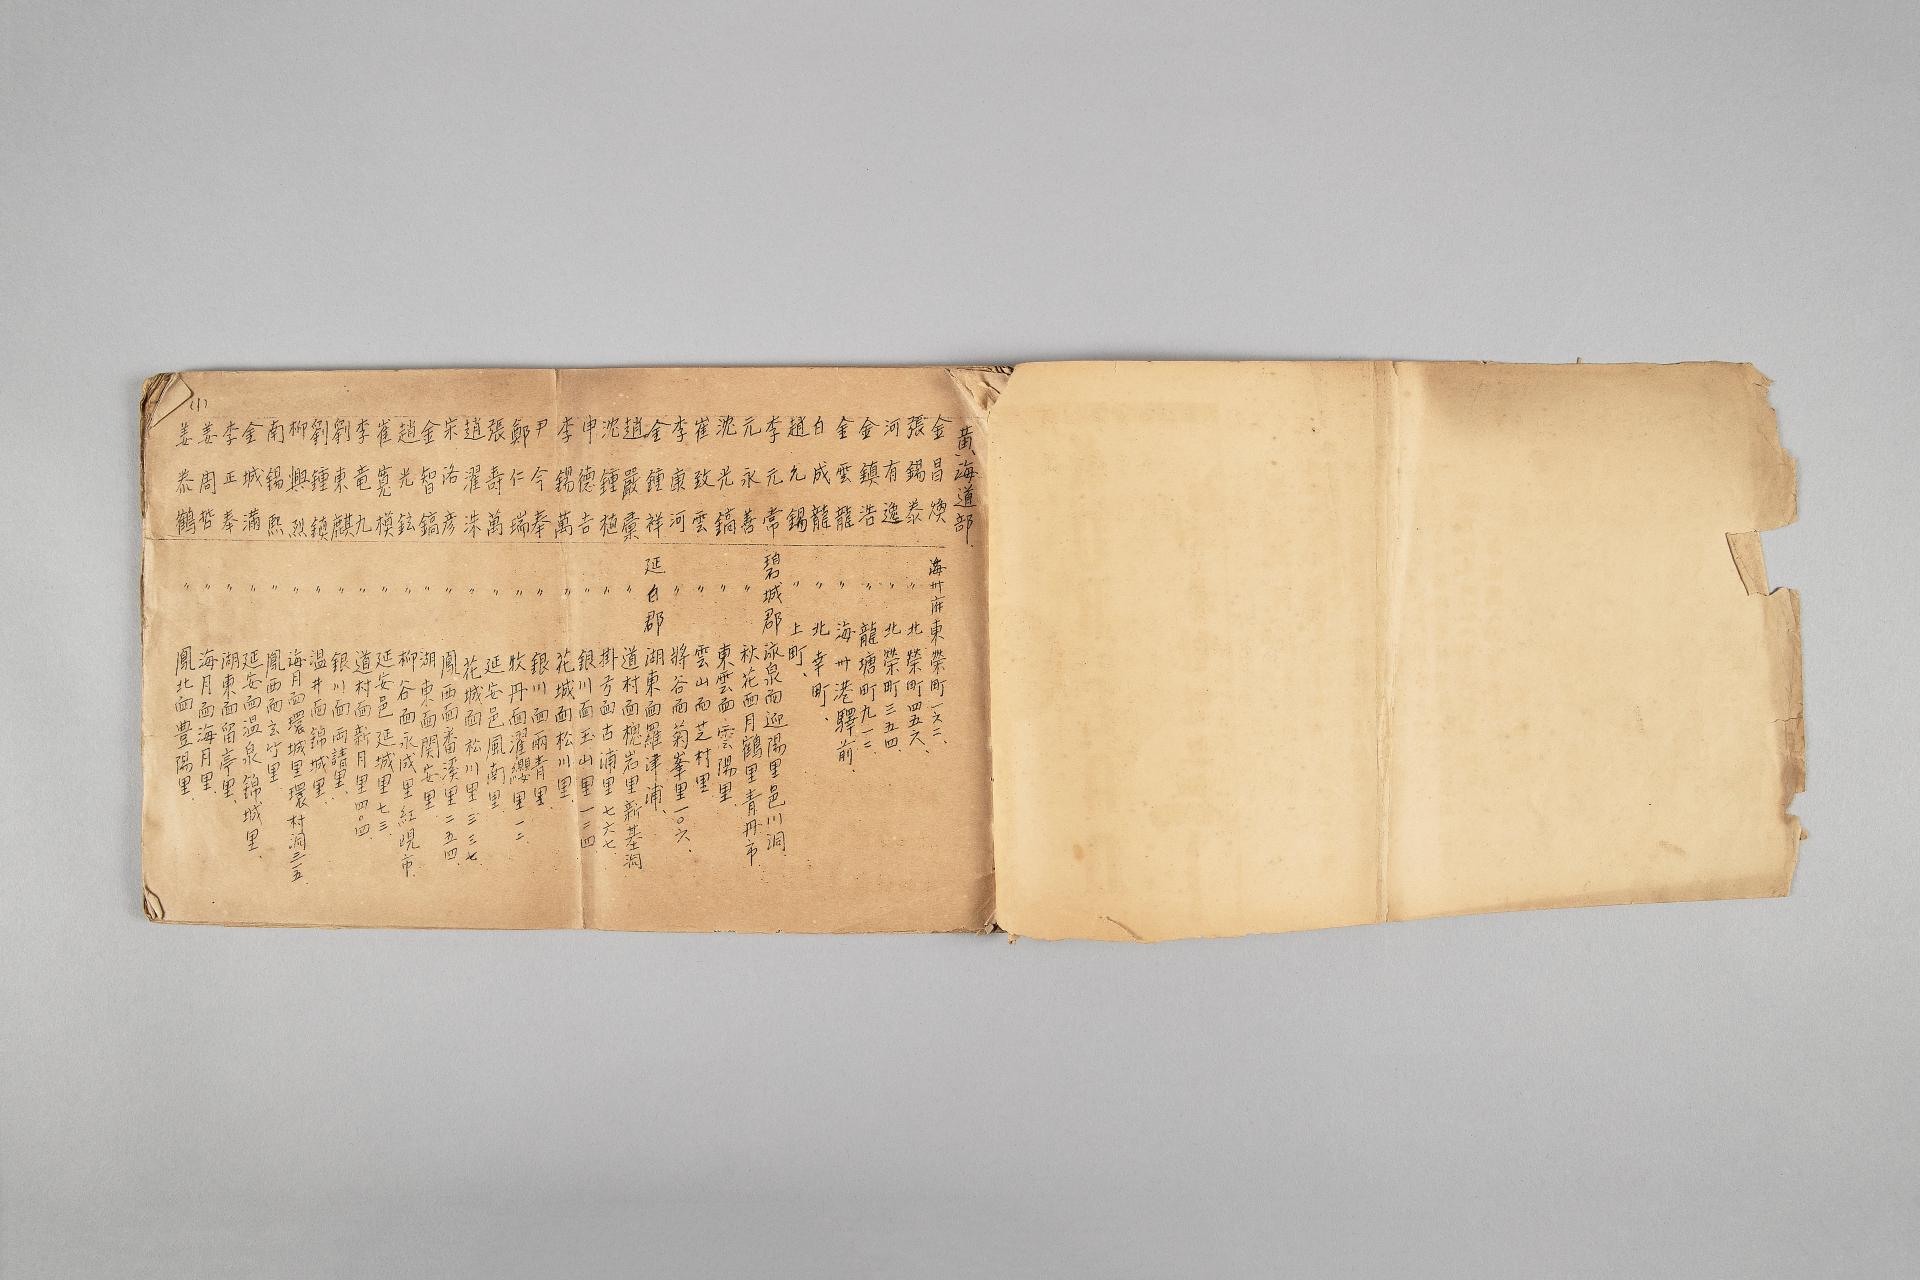 黃海道部.
金昌煥 海州府東榮町一六二、
張錫泰 〃 北榮町四五六、
河有逸 〃 北榮町三五四.
金鎮浩 〃 龍塘町九一二
金雲龍 〃 海州港驛前.
白成龍 〃 北幸町、
趙允錫 〃 上町、
李元常 碧城郡 泳泉面迎陽里邑川洞.
元永善 〃 秋花面月鶴里青丹市
沈光鎬 〃 東雲面雲陽里
崔致雲 〃 雲山面芝村里
李東河 〃 將谷面菊峯里一〇六、
金鍾祥 延白郡 湖東面羅津浦、
趙嚴彙 〃 道村面櫶岩里新基洞
沈鍾植 〃 掛弓面古浦里七六七
申德吉 〃 銀川面玉山里一二四
李錫萬 〃 花城面松川里
尹今奉 〃 銀川面兩青里
鄭仁瑞 〃 牧丹面濯纓里一二
張壽萬 〃 延安邑風南里
趙濯洙 〃 花城面松川里三三七
宋洛彥 〃 鳳西面番溪里二五四
金智鎬 〃 湖東面関安里
趙光鉉 〃 柳谷面永成里紅峴市
崔寬模 〃 延安邑延城里七三
李竜九 〃 道村面新月里四〇四
劉東麒 〃 銀川面両請里
劉鍾鎮 〃 温井面錦城里
柳興烈 〃 海月面環城里環村洞三一五
南錫熙 〃 鳳西面玄竹里
金城滿 〃 延安面温泉錦城里、
李正奉 〃 湖東面留亭里、
姜周楷 〃 海月面海月里
姜泰鶴 〃 鳳北面豊陽里
(1)